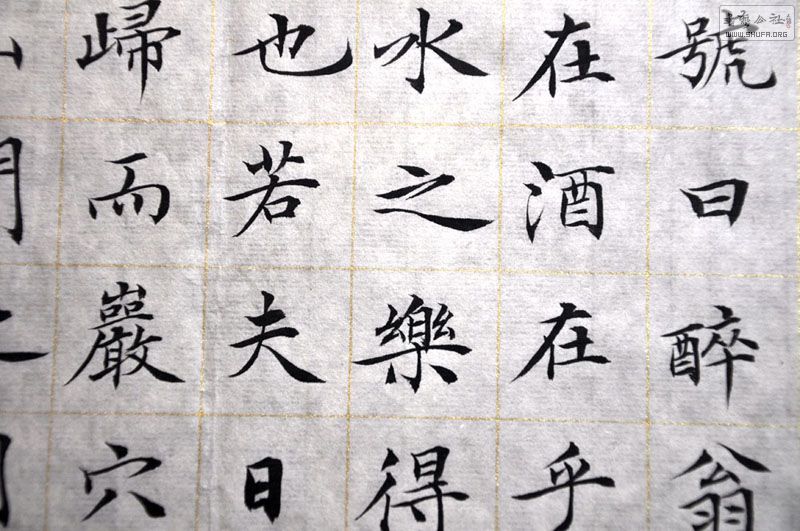 號曰醉翁
在酒在乎
水之樂得
也若夫日
歸而巖穴
書藝公社
WWW.SHUFA.ORG